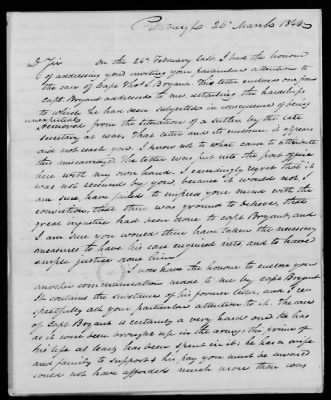 Pittsburgh 26th March 1844
D. Sir
On the 26th February last, I had the honour
of addressing you inviting your particular attention to
the case of Capt Thos. L. Bryant. This letter enclosed one from
Capt. Bryant addressed to me, detailing the hardships
to which he had been subjected in consequence of being
unexpectedly
removed from the situation of a Sutler by the late
Secretary of War. That letter and its enclosure it appears
did not reach you. I know not to what cause to attribute
this miscarriage. The letter was put into the post office
here with my own hand. I exceedingly regret that it
was not received by you because it would not I
am sure, have failed to impress your mind with the
conviction, that there was ground to believe, that
great injustice had been done to Capt Bryant, and
I am sure you would then have taken the necessary
measures to have his case enquired into and to have
ample justice done him.
I now have the honour to enclose you
another communication made to me by Capt Bryant
It contains the substance of his former letter, and I res
pectfully ask your particular attention to it. The case
of Capt Bryant is certainly a very hard one. He has
as it were been brought up in the army; the prime of
his life at least has been spent in it: he has a wife
and family to support & his pay you must be assured
could not have afforded much more than